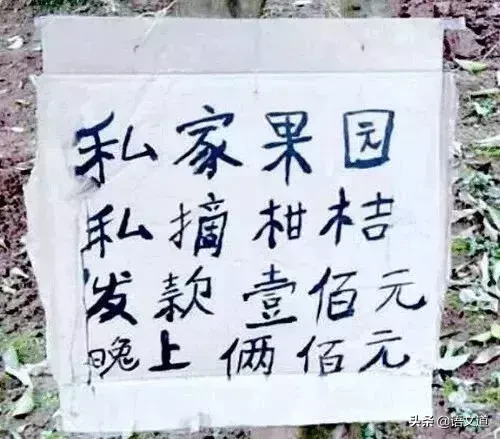 私家果园
私摘柑桔
发款壹佰元
晚上俩佰元
头条@语文道